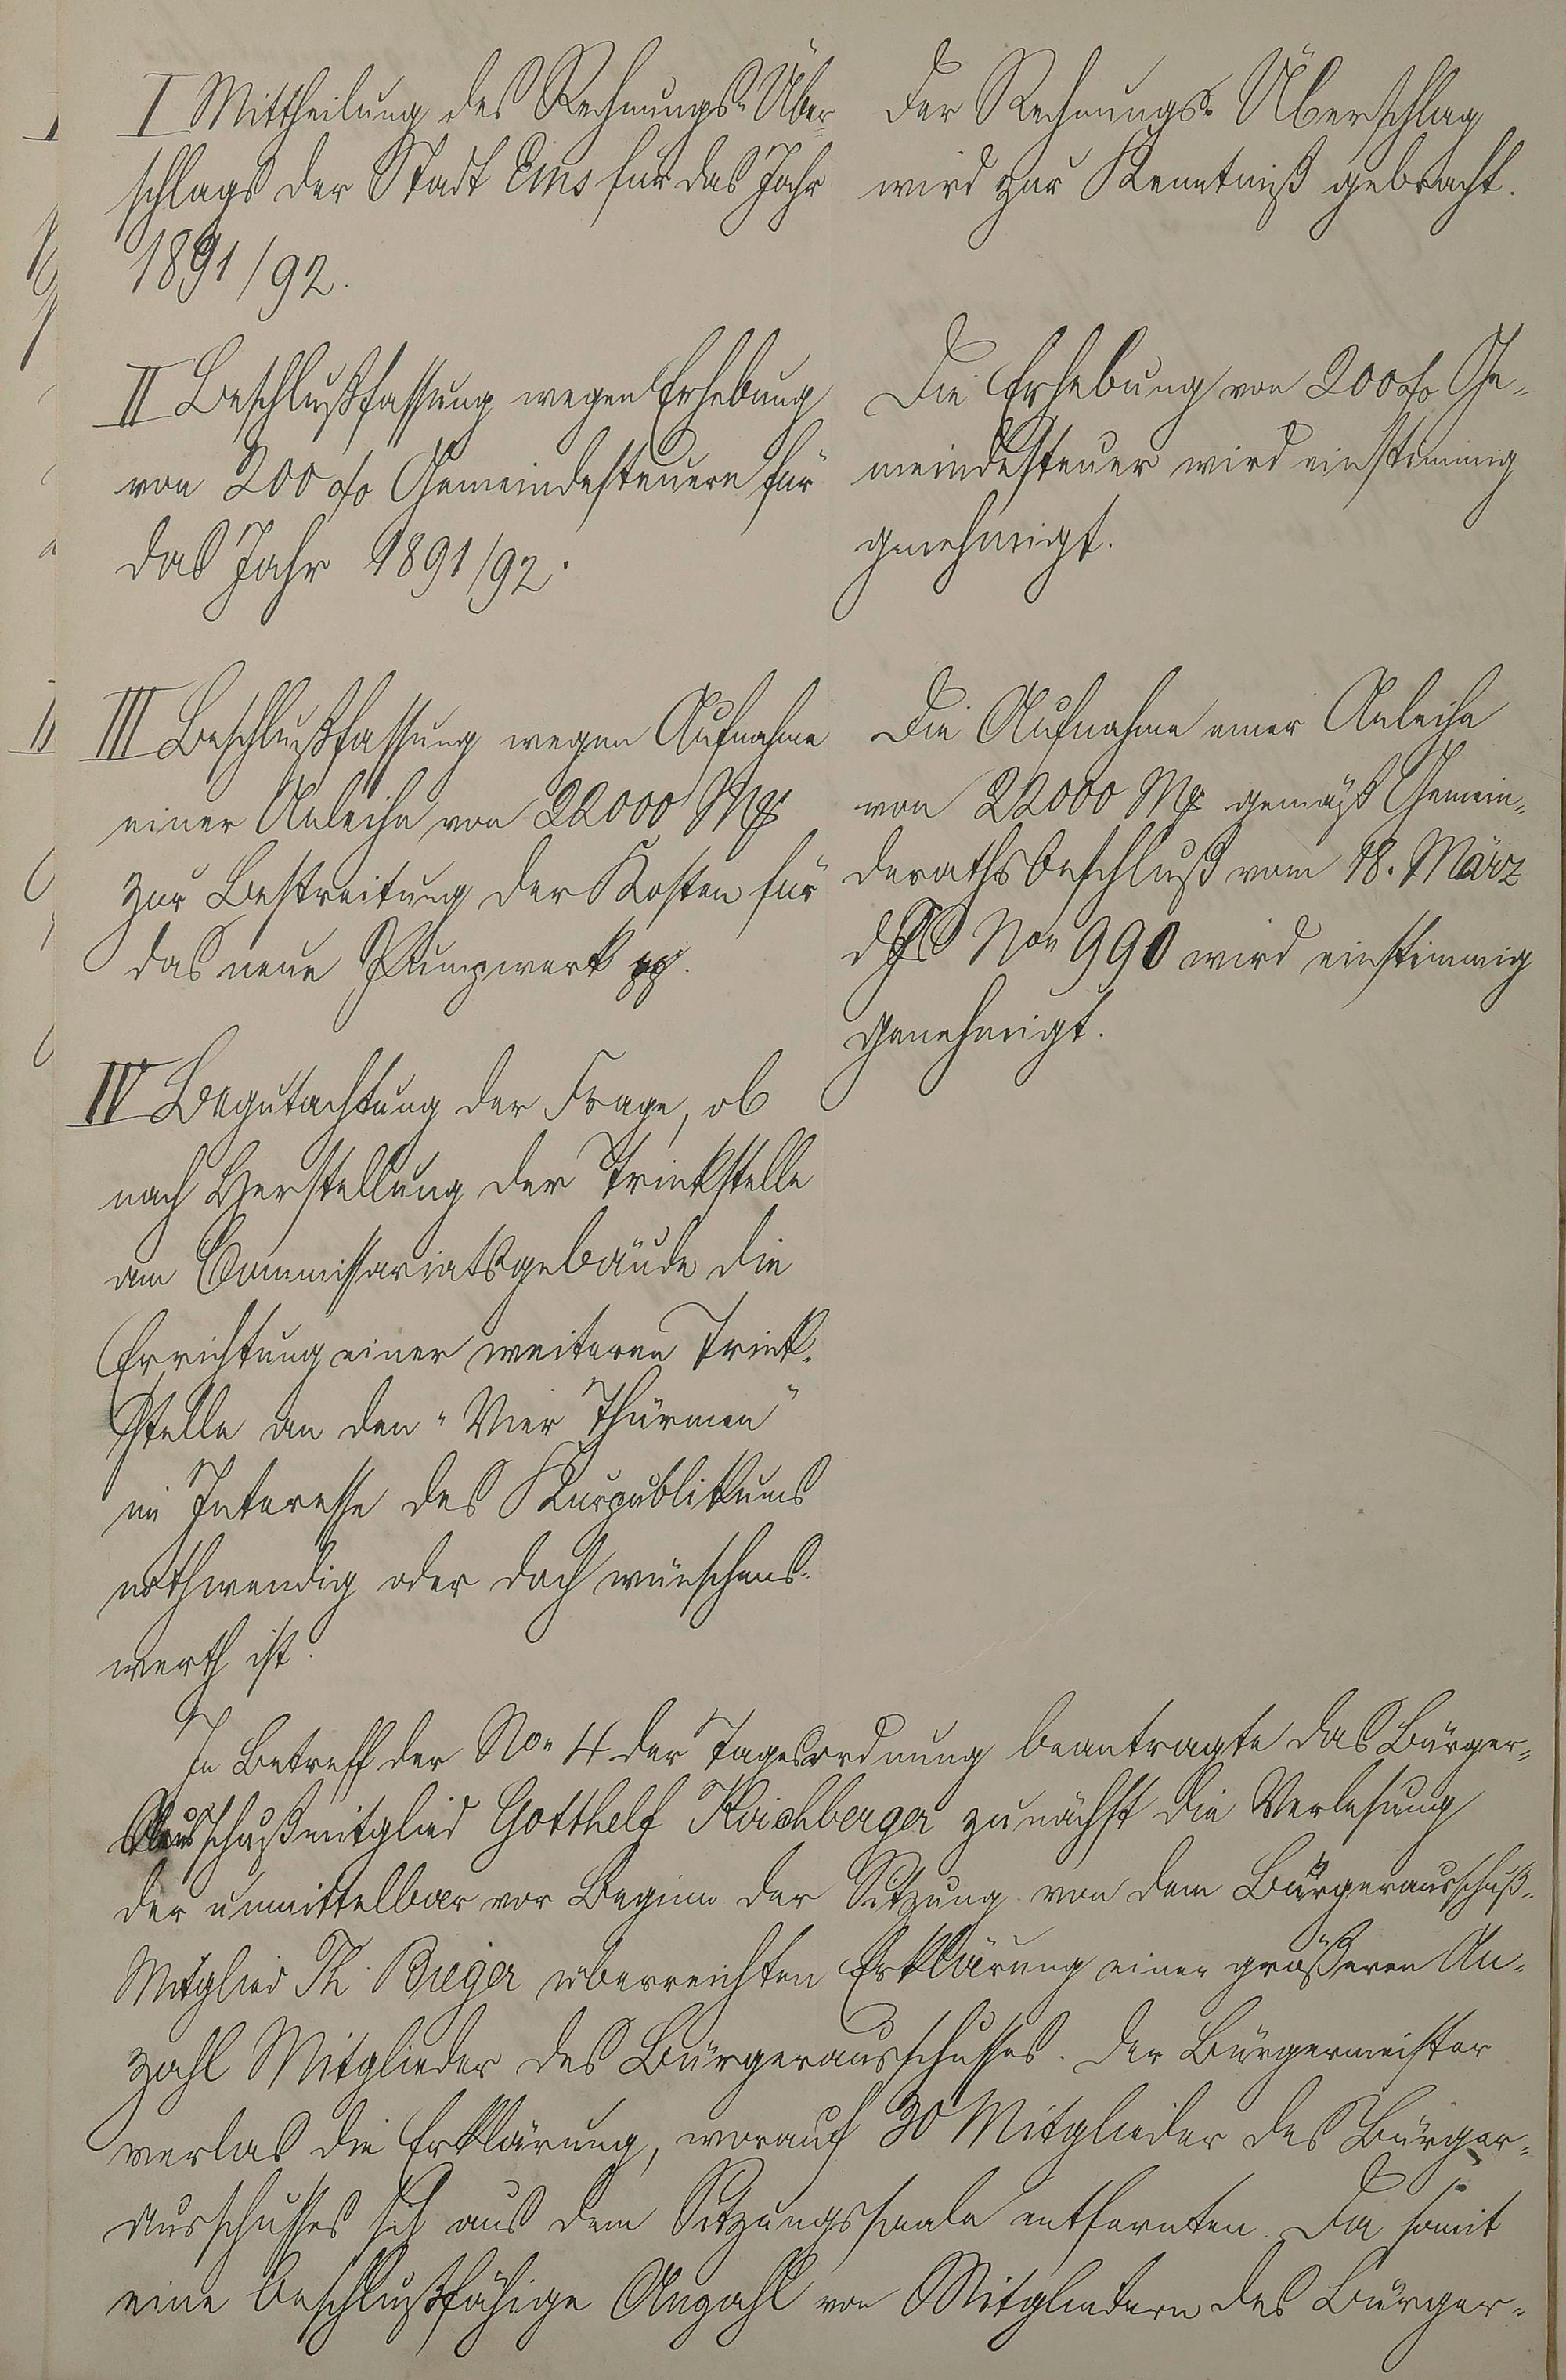 I Mittheilung des Rechnungs-Über-
schlags der Stadt Ems für das Jahr
1891/92.
Der Rechnungs-Überschlag
wird zur Kenntniß gebracht.
II Beschlußfassung wegen Erhebung
von 200 % Gemeindesteuern für
das Jahr 1891/92.
Die Erhebung von 200 % Ge-
meindesteuer wird einstimmig
genehmigt.
III Beschlußfassung wegen Aufnahme
einer Anleihe von 22000 Mk
zur Bestreitung der Kosten für
das neue Pumpwerk pp.
Die Aufnahme einer Anleihe
von 22000 Mk gemäß Gemein-
derathsbeschluß vom 18. März
d Js No 990 wird einstimmig
genehmigt.
IV Begutachtung der Frage, ob
nach Herstellung der Trinkstelle
am Commissariatsgebäude die
Errichtung einer weiteren Trink-
stelle an den "Vier Thürmen"
im Interesse des Kurpublikums
nothwendig oder doch wünschens-
werth ist.
In Betreff der No 4 der Tagesordnung beantragte das Bürger-
Ausschußmitglied Gotthelf Kirchberger zunächst die Verlesung
der unmittelbar vor Beginn der Sitzung von dem Bürgerausschuß-
Mitglied Th. Bieger überreichten Erklärung einer größeren An-
zahl Mitglieder des Bürgerausschusses. Der Bürgermeister
verlas die Erklärung, worauf 30 Mitglieder des Bürger-
ausschusses sich aus dem Sitzungssaale entfernten. Da somit
eine beschlußfähige Anzahl von Mitgliedern des Bürger-